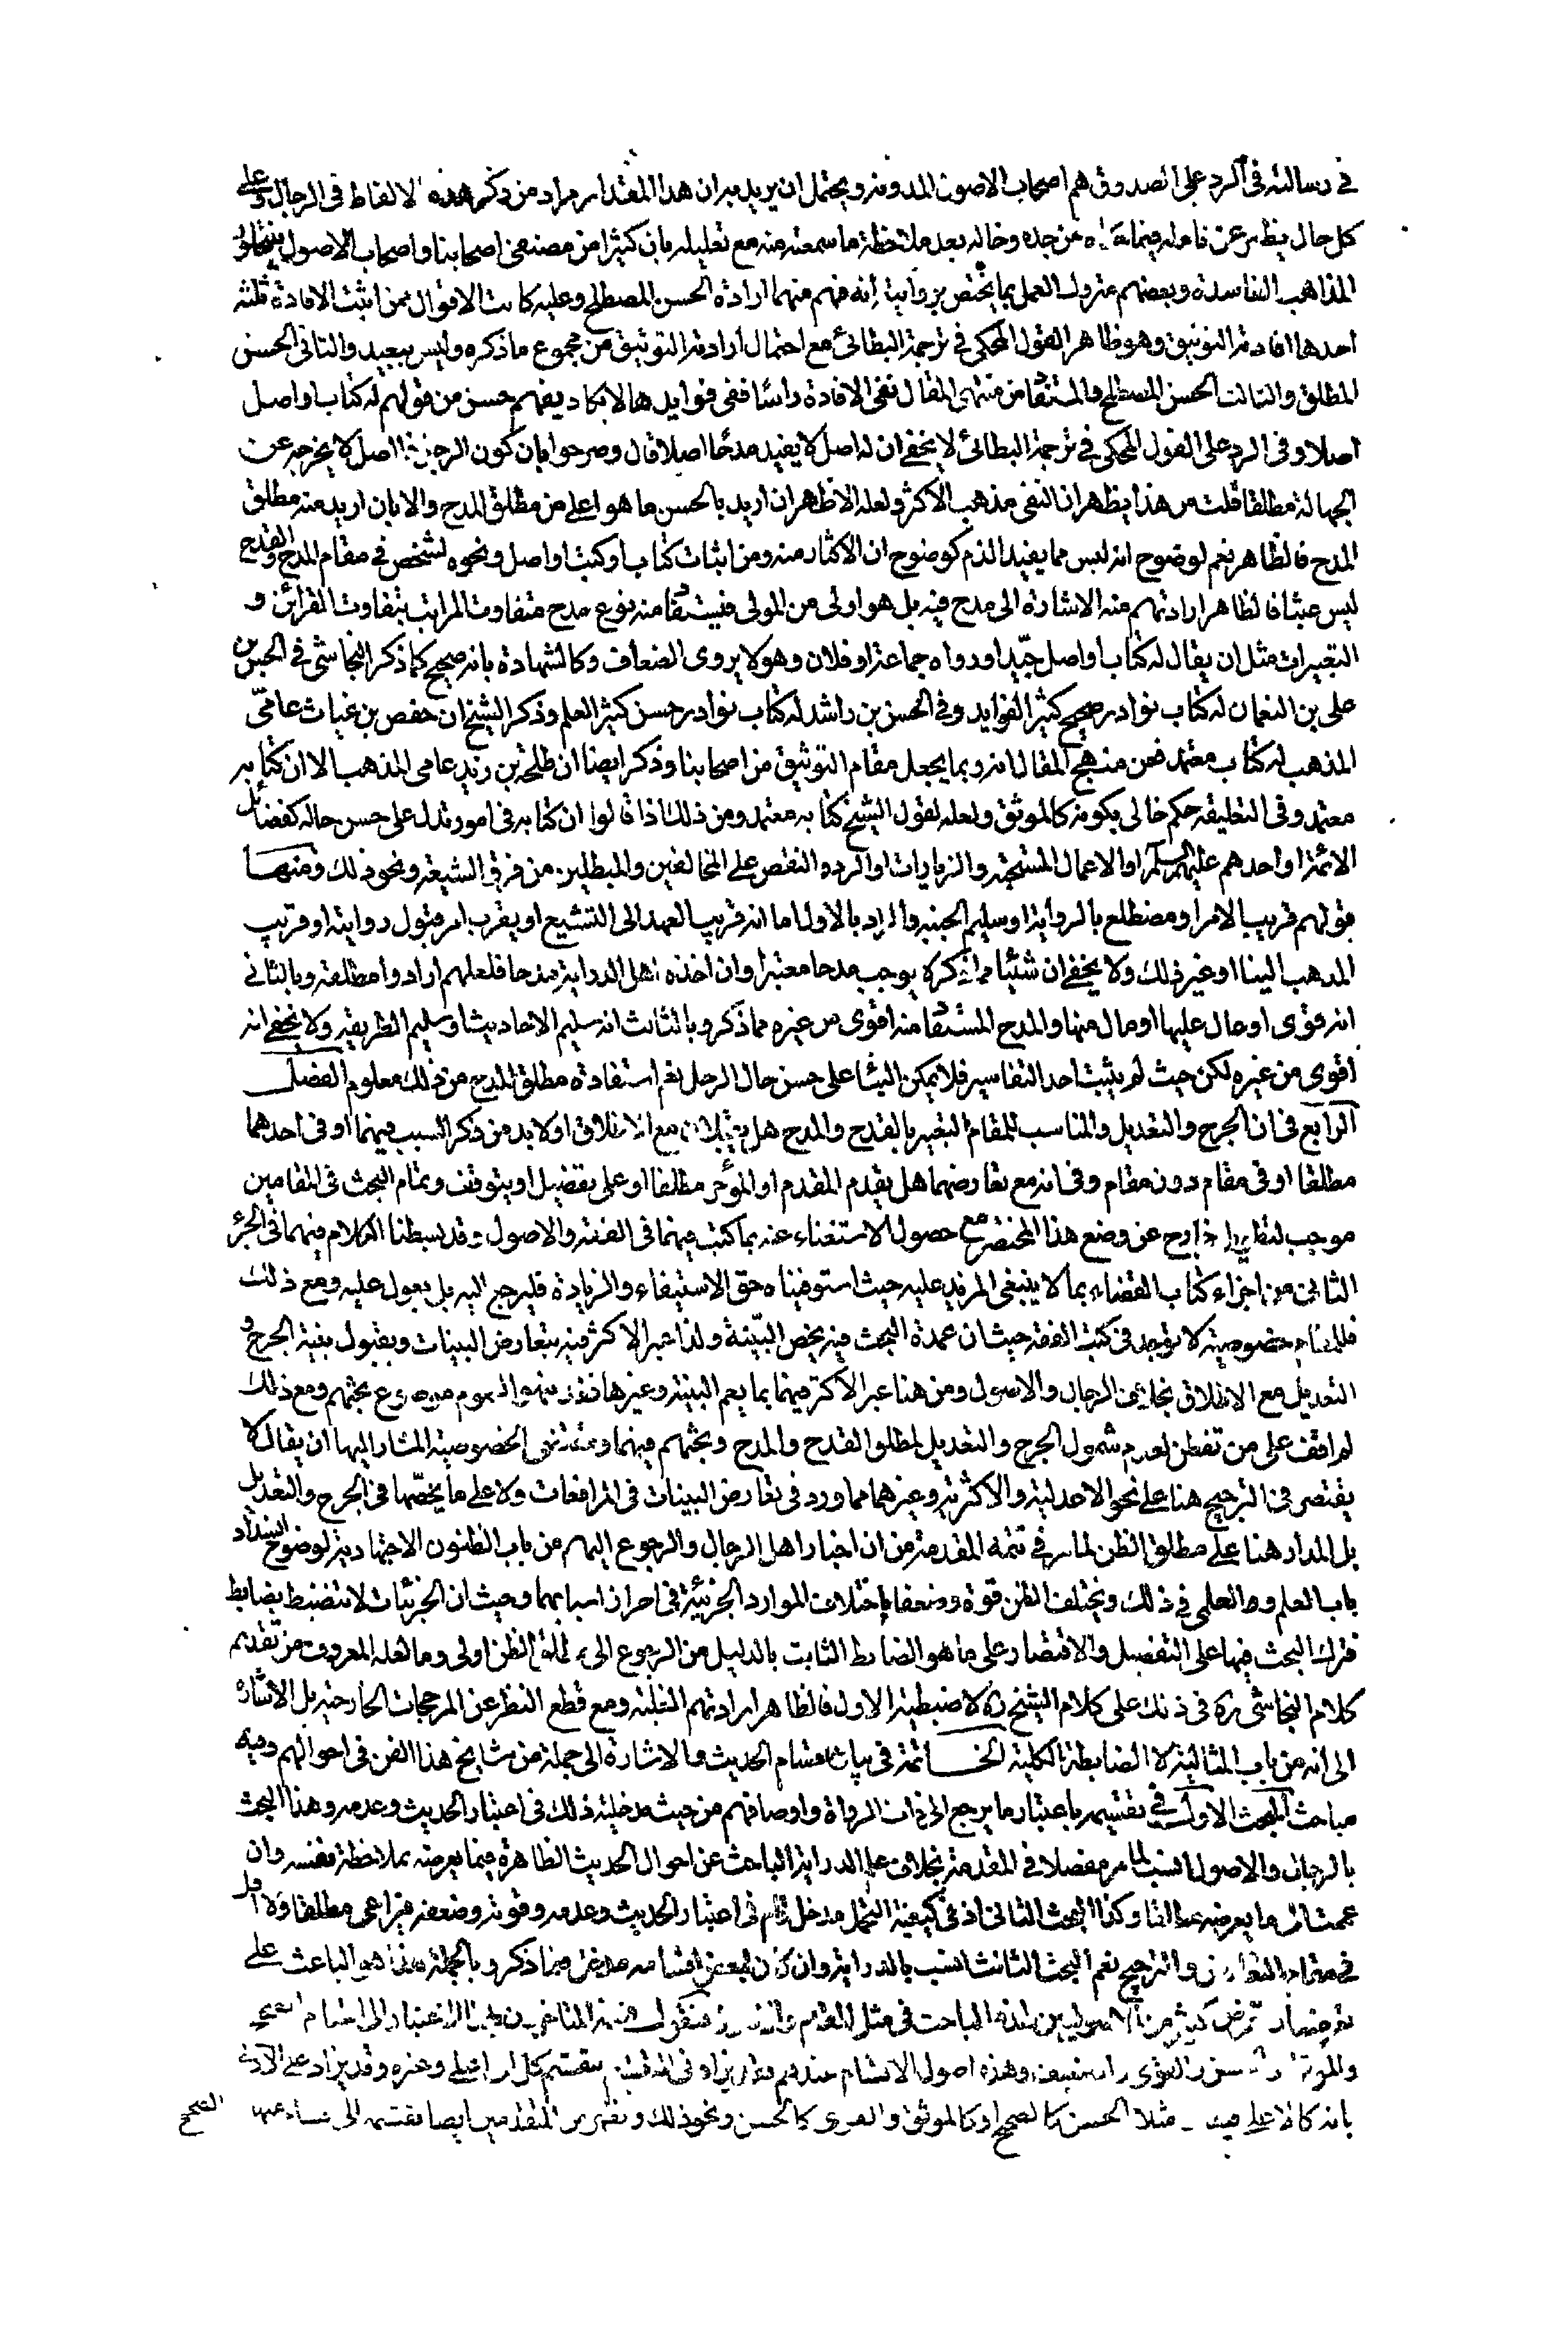 في رسالته في الرد على الصدوق هم اصحاب الاصول المدونة ويحتمل ان يريد به ان هذا المقدار مراد من ذكر هذه الالفاظ في الرجال وعلى
كل حال يظهر عن جده وخاله بعد ملاحظة ما سمعته منه مع تعليله بان كثيرا من مصنفي اصحابنا واصحاب الاصول ينتحلون
المذاهب الفاسدة وبعضهم متروك العمل بما يختص بروايته انه فهم منهما ارادة الحسن المصطلح وعليه كانت الاقوال ممن اثبت الافادة ثلثه
احدها افادته التوثيق وهو ظاهر القول المحكي في ترجمة البطائنى مع احتمال ارادته التوثيق من مجموع ما ذكره وليس ببعيد والثاني الحسن
المطلق والثالث الحسن المصطلح والمستفاد من منتهى المقال نفى الافادة راسا ففى فوايدها لا يكاد يفهم حسن من قولهم له كتاب او اصل
اصلا وفي الرد على القول المحكي في ترجمة البطائنى لا يخفى ان له اصل لا يفيد مدحا اصلا قال وصرحوا بان كون الرجل ذا اصل لا يخرجه عن
الجهالة مطلقا قلت من هذا يظهر ان النفى مذهب الاكثر ولعله الاظهر ان اريد بالحسن ما هو اعلى من مطلق المدح والا بان اريد منه مطلق
المدح فالظاهر نعم لوضوح انه ليس مما يفيد الذم كوضوح ان الاكثار منه ومن اثبات كتاب او كتب او اصل ونحوه لشخص في مقام المدح والقدح
ليس عبثا فالظاهر ارادتهم منه الاشارة الى مدح فيه بل هو اولى من المولى فيستفاد منه نوع مدح متفاوت المراتب بتفاوت القرائن و
التعبيرات مثل ان يقال له كتاب او اصل جيد او رواه جماعة او فلان وهو لا يروى الضعاف وكالشهادة بانه صحيح كما ذكر النجاشى في الحسن بن
على بن النعمان له كتاب نوادر صحيح كثير الفوايد وفي الحسن بن راشد له كتاب نوادر حسن كثير العلم وذكر الشيخ ان حفص بن غياث عامي
المذهب له كتاب معتمد فعن منهج المقال انه ربما يجعل مقام التوثيق من اصحابنا وذكر ايضا ان طلحة بن زيد عامي المذهب الا ان كتابه
معتمد وفي التعليقة حكم خالى بكونه كالموثق ولعله لقول الشيخ كتابه معتمد ومن ذلك اذا قالوا ان كتابه في امور تدل على حسن حاله كفضائل
الائمة او احدهم عليهم السلام او الاعمال المستحبة والزيارات او الرد والنقض على المخالفين والمبطلين من فرق الشيعة ونحو ذلك ومنها
قولهم قريب الامر او مضطلع بالرواية او سليم الجنبة والمراد بالاول اما انه قريب العهد الى التشيع او يقرب امر قبول روايته او قريب
المذهب الينا او غير ذلك ولا يخفى ان شيئا مما ذكر لا يوجب مدحا معتبرا وان اخذه اهل الدراية مدحا فلعلهم ارادوا مطلقه وبالثاني
انه قوى او عال عليها او مال منها والمدح المستفاد منه اقوى من غيره مما ذكر وبالثالث انه سليم الاحاديث او سليم الطريقة ولا يخفى انه
اقوى من غيره لكن حيث لم يثبت احد التفاسير فلا يمكن البناء على حسن حال الرجل نعم استفادة مطلق المدح من ذلك معلوم الفصل
الرابع في ان الجرح والتعديل والمناسب للمقام التعبير بالقدح والمدح هل يقبلان مع الاطلاق او لا بد من ذكر السبب فيهما او في احدهما
مطلقا او في مقام دون مقام وفي انه مع تعارضهما هل يقدم المقدم او المؤخر مطلقا او على تفصيل او يتوقف وتمام البحث في المقامين
موجب لتطويل خارج عن وضع هذا المختصر مع حصول الاستغناء عنه بما كتب فيهما في الفقه والاصول وقد بسطنا الكلام فيهما في الجزء
الثاني من اجزاء كتاب القضاء بما لا ينبغي المزيد عليه حيث استوفيناه حق الاستيفاء والزيادة فليرجع اليه بل يعول عليه ومع ذلك
فللمقام خصوصية لا توجد في كتب الفقه حيث ان عمدة البحث فيه يخص البينة ولذا عبر الاكثر فيه بتعارض البينات وبقبول بينة الجرح و
التعديل مع الاطلاق بخلاف الرجال والاصول ومن هنا عبر الاكثر فيهما بما يعم البينة وغيرها بحثهم ومع ذلك
لم اقف على من تفطن لعدم شمول الجرح والتعديل لمطلق القدح والمدح وبحثهم فيهما ومقتضى الخصوصية المشار اليها ان يقال لا
يقتصر في الترجيح هنا على نحو الاعدلية والاكثرية وغيرهما مما ورد في تعارض البينات في المرافعات ولا على ما يخصها في الجرح والتعديل
بل المدار هنا على مطلق الظن لما مر في تتمة المقدمة من ان اخبار اهل الرجال والرجوع اليهم من باب الظنون الاجتهادية لوضوح انسداد
باب العلم والعلمي في ذلك ويختلف الظن قوة وضعفا باختلاف الموارد الجزئية في احراز اسبابهما وحيث ان الجزئيات لا تنضبط بضابط
فترك البحث فيها على التفصيل والاقتصار على ما هو الضابط الثابت بالدليل من الرجوع الى مطلق الظن اولى وما لعله المعروف من تقديم
كلام النجاشى ره في ذلك على كلام الشيخ ره لاضبطية الاول فالظاهر ارادتهم الغلبة ومع قطع النظر عن المرجحات الخارجية بل الاشارة
الى انه من باب المثالية لا الضابطة الكلية الخاتمة في بيان اقسام الحديث والاشارة الى جملة من مشايخ هذا الفن في احوالهم وفيه
مباحث المبحث الاول في تقسيمه باعتبار ما يرجع الى ذات الرواة واوصافهم من حيث مدخلية ذلك في اعتبار الحديث وعدمه وهذا البحث
بالرجال والاصول انسب لما مر مفصلا في المقدمة بخلاف علم الدراية الباحث عن احوال الحديث الظاهرة فيما يعرضه بملاحظة نفسه وان
وكذا البحث الثاني اذ في كيفية التحمل مدخل تام في اعتبار الحديث وعدمه وقوته وضعفه فيراعى مطلقا ولا اقل
في مقام التعارض والترجيح نعم البحث الثالث انسب بالدراية وان كان لبعض اقسامه مدخل فيما ذكر وبالجملة هذا هو الباعث على
تعرض كثير من الاصوليين لهذه المباحث في مثل المقام فنقول
وهذه اصول الاقسام عندهم وقد يزاد في التقسيم بتقسيم كل الى اعلى وغيره وقد يزاد على الادنى
بانه كالاعلى فيه مثلا الحسن كالصحيح او كالموثق والقوى كالحسن ونحو ذلك
الصحيح